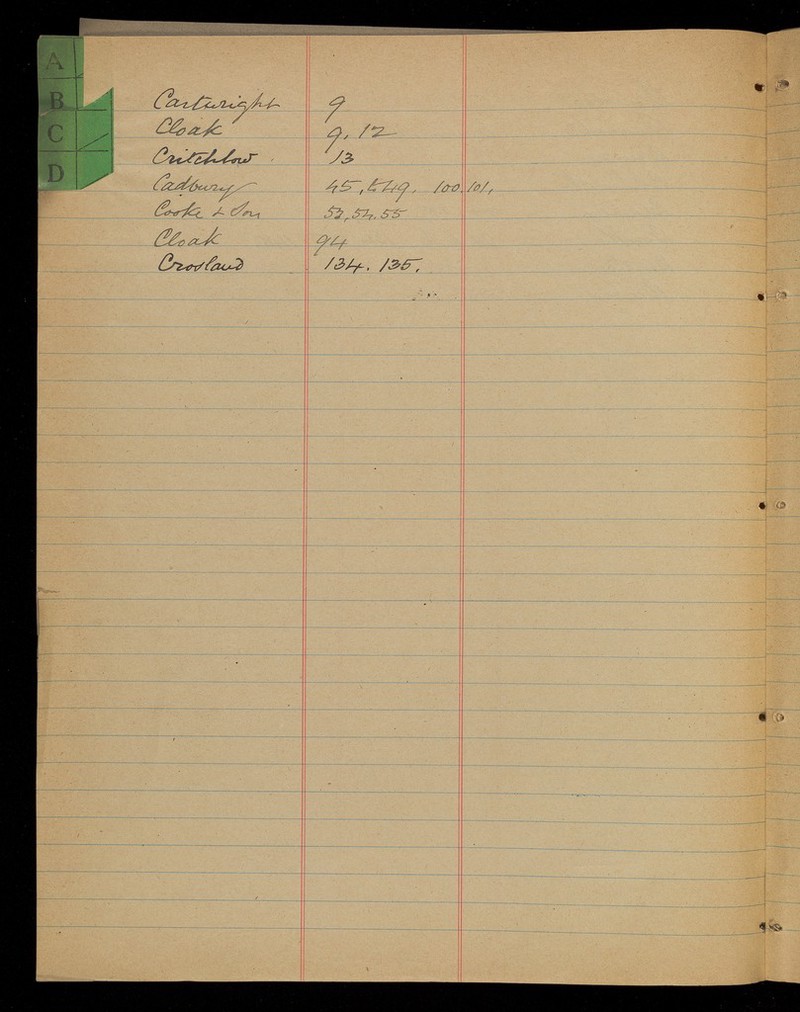 A
B
C
D
Cartwright 9
Cloak 9, 12
Critchlow 13
Cadbury 45, to 49, 100, 101,
Cooke & Son 53, 54, 55
Cloak 94
Crosland 134. 135.